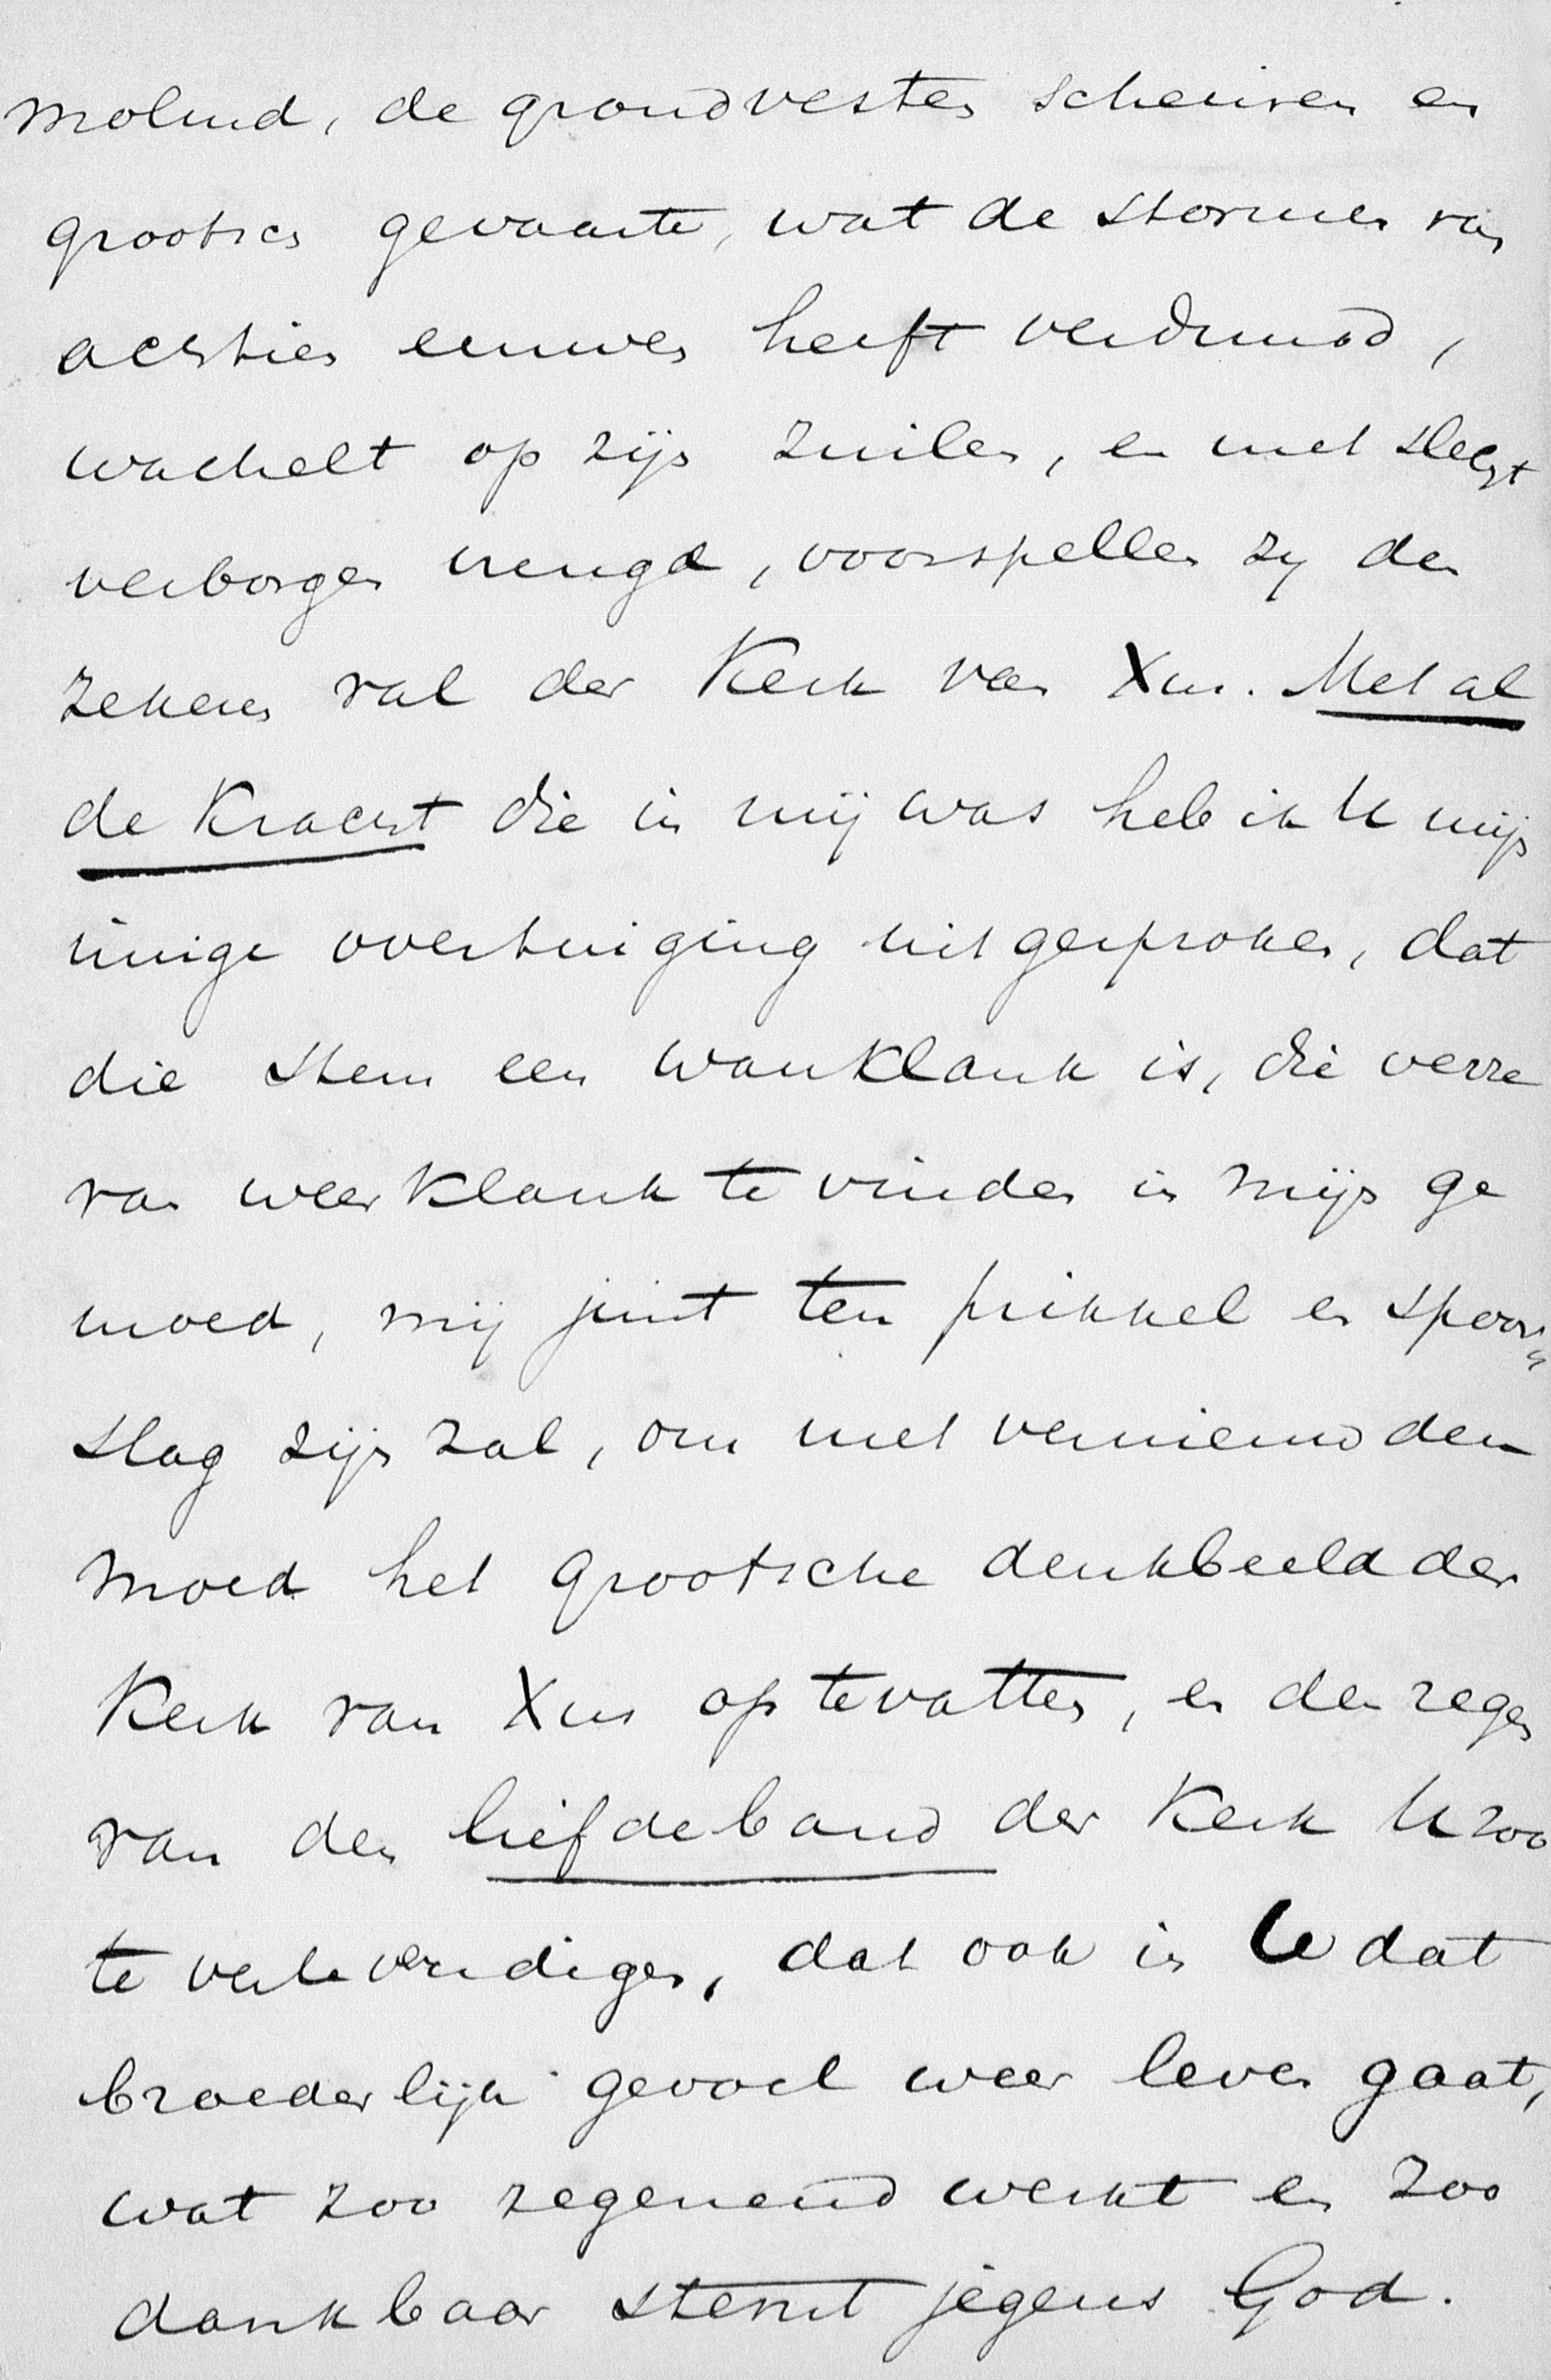 molmd, de grondvesten scheuren en
grootsch gevaarte, wat de stormen van
achttien eeuwen heeft verduurd,
wackelt op zijn zuilen, en met slecht
verborgen vreugd, voorspellen zij den
zekeren val der Kerk van Xus. Met al
de Kracht die in mij was heb ik U mijn
innige overtuiging uitgesproken, dat
die stem een wanklank is, die verre
van weerklank te vinden in mijn ge
moed, mij juist ten prikkel en spoor=
slag zijn zal, om met vernieuwden
moed het grootsche denkbeeld der
Kerk van Xus op te vatten, en den zegen
van den liefdeband der Kerk U zoo
te verlevendigen, dat ook in U dat
broederlijk gevoel weer leven gaat,
wat zoo zegenend werkt en zoo
dankbaar stemt jegens God.